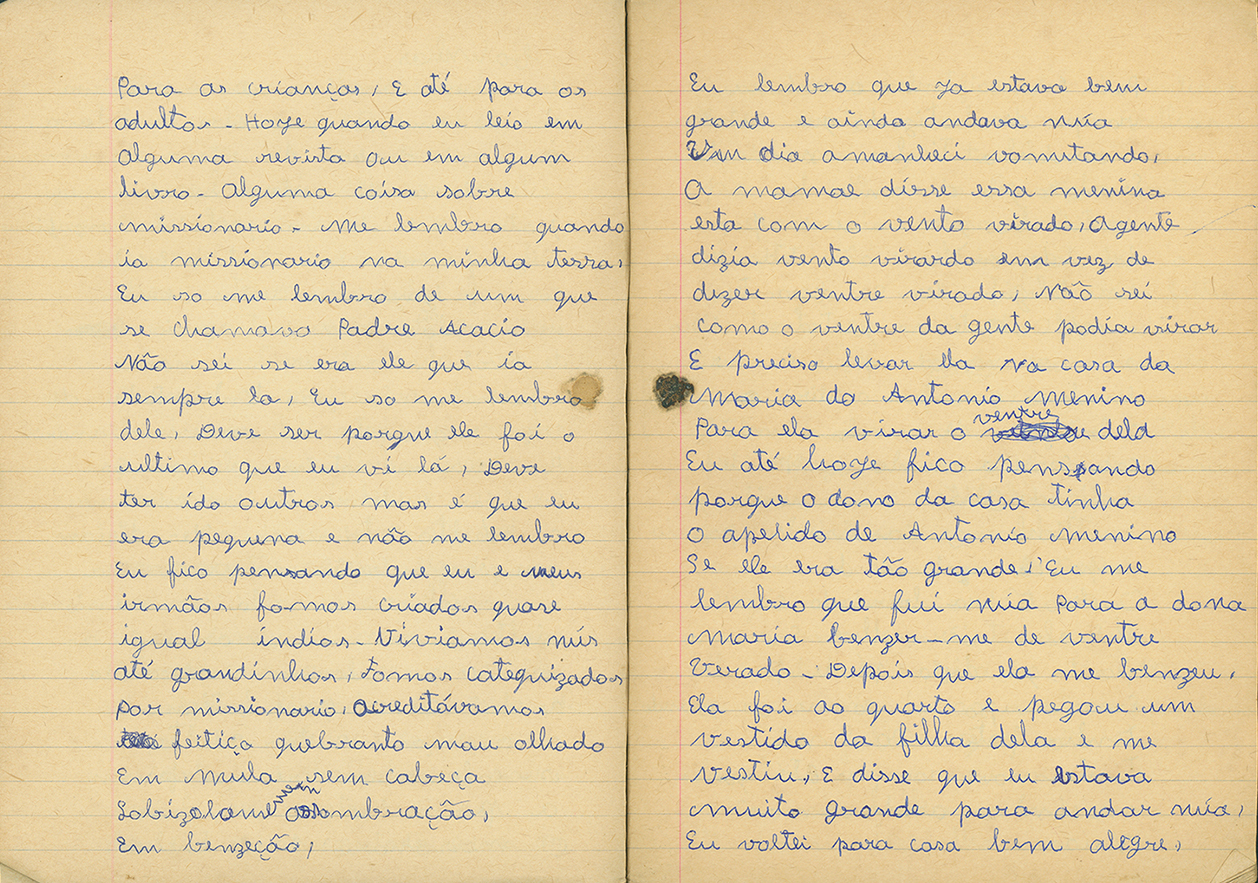 Para as crianças, E até para os
adultos - Hoye quando eu leio em
Alguma revista ou em algum
livro - Alguma coisa sobre
missionario - me lembro quando
ia missionario na minha terra,
Eu so me lembro de um que
se chamava Padre Acacio
Não sei se era ele que ia
sempre la, Eu so me lembro
dele, Deve ser porque ele foi o
ultimo que eu vi lá, Deve
ter ido outros mas é que eu
era pequena e não me lembro
Eu fico pensando que eu e meus
irmãos fomos criados quase
igual índios - Viviamos nús
até grandinhos, Fomos catequizados
por missionario, Acreditávamos
feitiça quebranto mau olhado
Em mula sem cabeça
Lobizolame assombração,
Em benzeção,
Eu lembro que ya estava bem
grande e ainda andava núa
Um dia amanheci vomitando,
A mamae disse essa menina
esta com o vento virado, Agente
dizia vento virardo em vez de
dizer ventre virado, Não sei
como o ventre da gente podia virar
E preciso levar ela na casa da
Maria do Antonio menino
Para ela virar o ventre dela
Eu até hoye fico pensando
porque o dono da casa tinha
O apelido de Antonio menino
Se ele era tão grande! Eu me
lembro que fui núa Para a dona
Maria benzer-me de ventre
Verado - Depois que ela me benzeu,
Ela foi ao quarto e pegou um
vestido da filha dela e me
vestiu, E disse que eu estava
muito grande para andar núa,
Eu voltei para casa bem alegre,